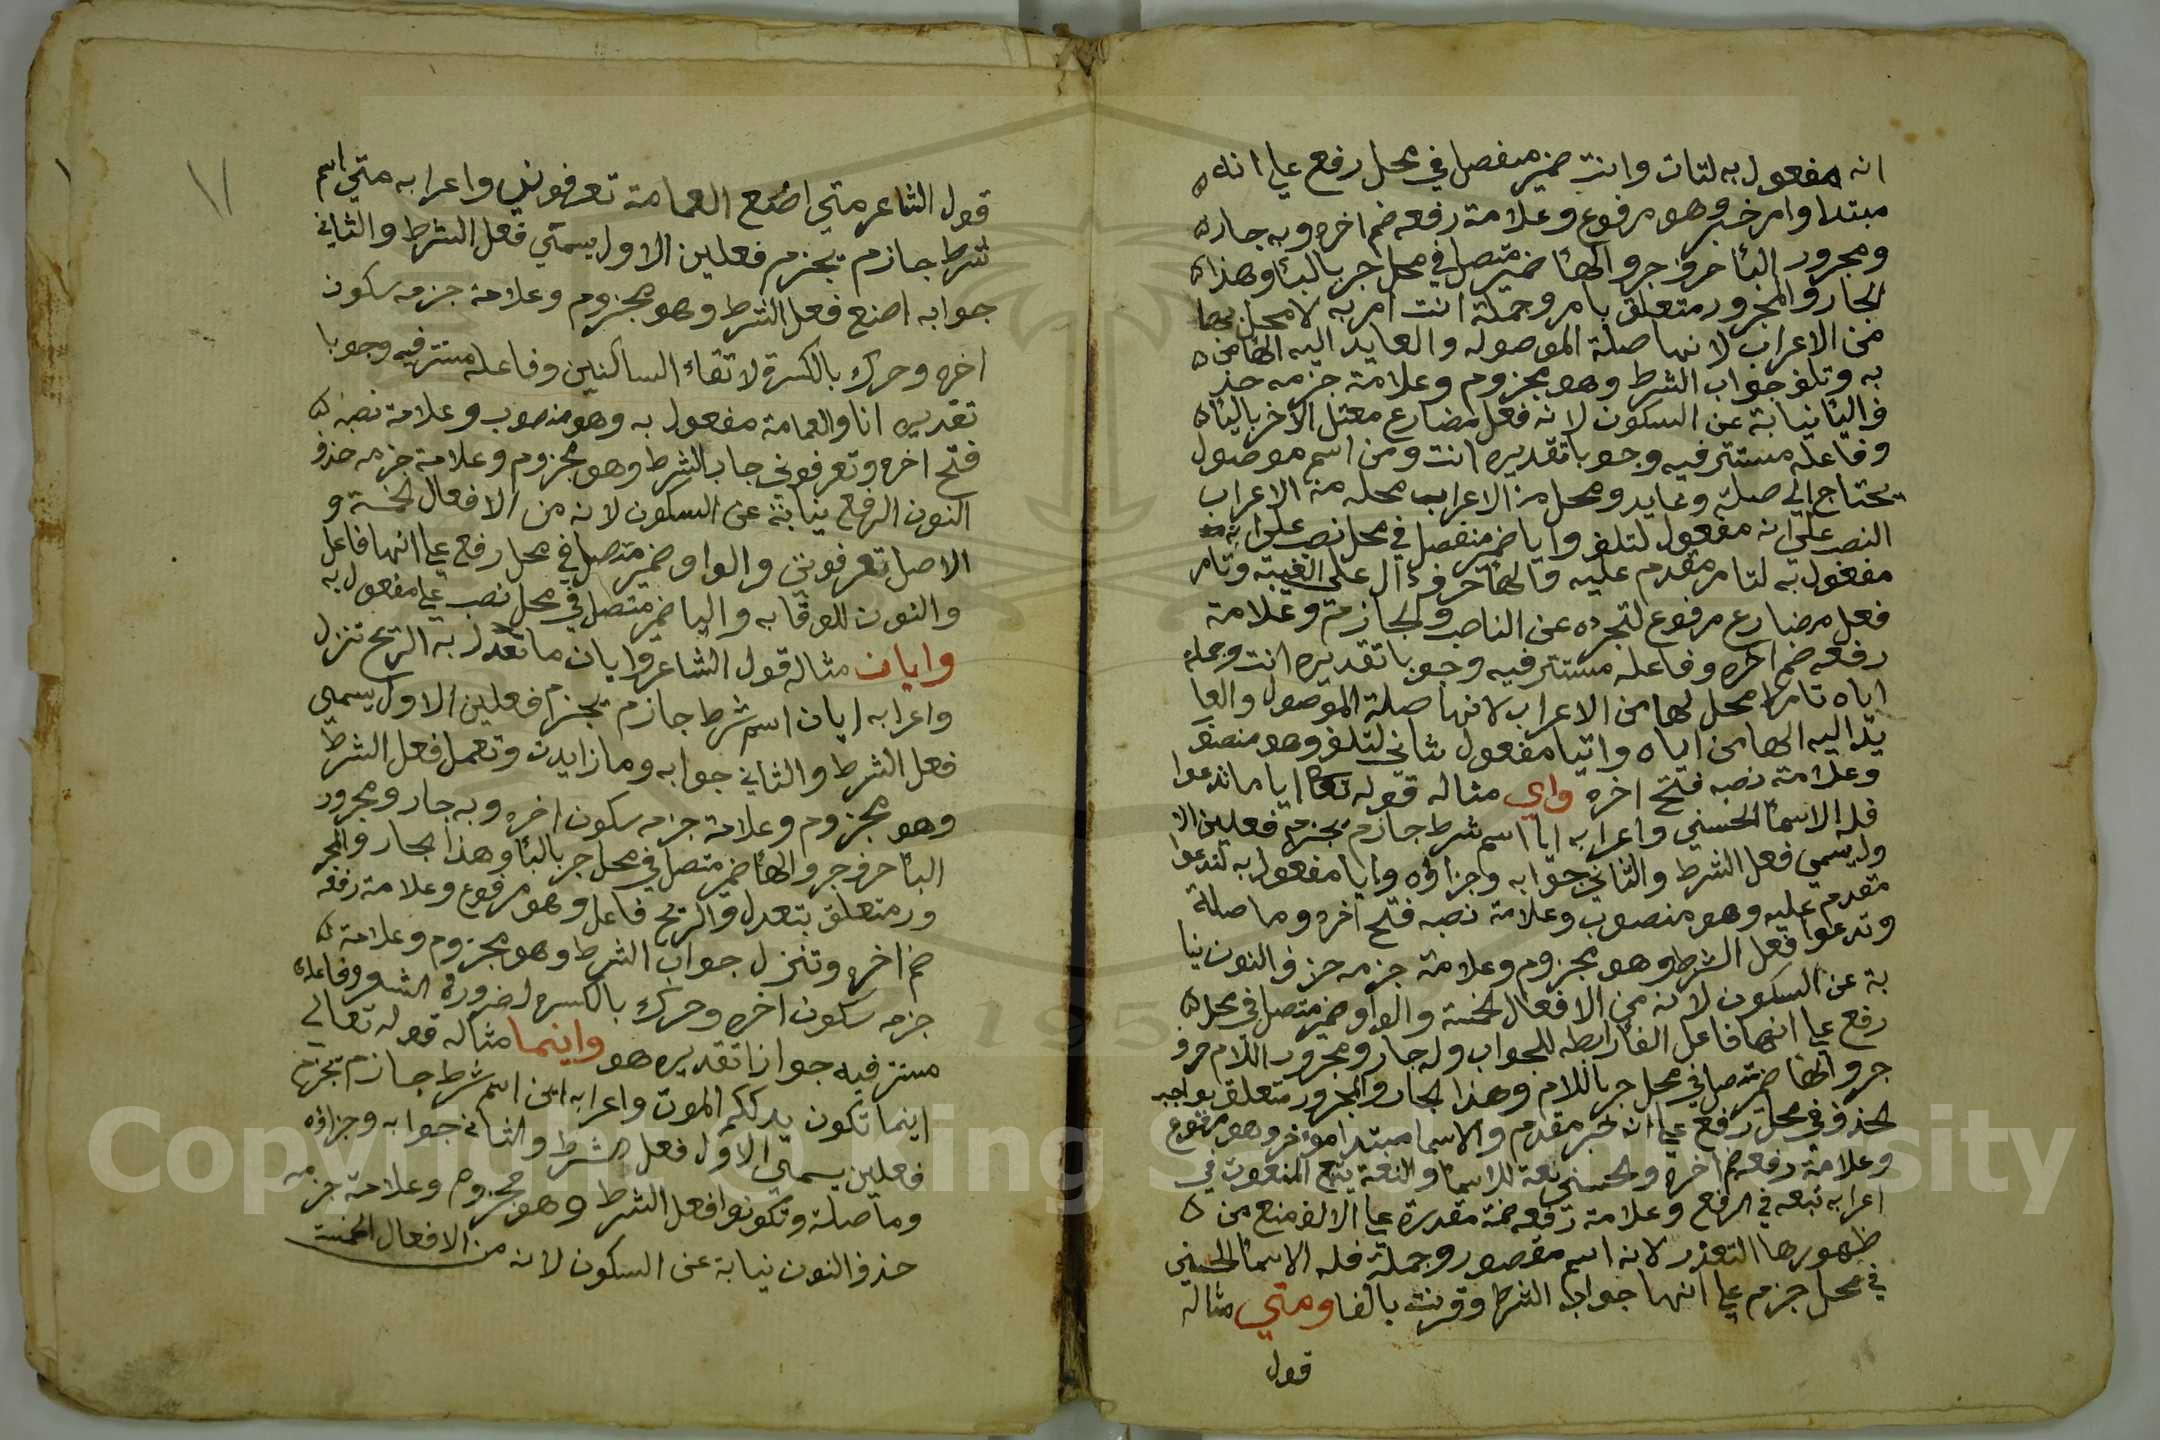 انه مفعول به لتات وانت ضمير منفصل في محل رفع علي انه
مبتدا وامر خبر وهو مرفوع وعلامة رفعه ضم اخره وبه جار
ومجرور البأ حرف جر والهأ ضمير متصل في محل جر بالبأ وهذا
الجار والمجرور متعلق بامر وجملة انت امر به لا محل لها
من الاعراب لانها صلة الموصوله والعايد اليه الها من
به وتلف جواب الشرط وهو مجزوم وعلامة جزمه حذ
ف اليأ نيابة عن السكون لانه فعل مضارع معتل الاخر باليأ
وفاعله مستتر فيه وجوبا تقديره انت ومن اسم موصول
يحتاج الي صلة وعايد ومحل من الاعراب محله من الاعراب
النصب علي انه مفعول لتلف وايا ضمير منفصل في محل نصب علي انه
مفعول به لتامر مقدم عليه والهأ حرف دال علي الغيبة وتامر
فعل مضارع مرفوع لتجرده عن الناصب والجازم وعلامة
رفعه ضم اخره وفاعله مستتر فيه وجوبا تقديره انت وجملة
اياه تامر لا محل لها من الاعراب لانها صلة الموصول والعا
يد اليه الها من اياه واتيا مفعول ثاني لتلف وهو منصو
وعلامة نصبه فتح اخره واي مثاله قوله تعا ايا ما تدعوا
فله الاسمأ الحسني واعرابه ايا اسم شرط جازم يجزم فعلين الا
ول يسمي فعل الشرط والثاني جوابه وجزاؤه وايا مفعول به لتدعوا
متقدم عليه وهو منصوب وعلامة نصبه فتح اخره وما صلة
وتدعوا فعل الشرط وهو مجزوم وعلامة جزمه حزف النون نيا
بة عن السكون لانه من الافعال الخمسة والواو ضمير متصل في محل
رفع علي انها فاعل الفا رابطه للجواب وله جار ومجرور اللام حرف
جر والهأ ضمير متصل في محل جر باللام وهذا الجار والمجرور متعلق بواجب
الحذف في محل رفع علي انه خبر مقدم والاسما مبتدا مؤخر وهو مرفوع
وعلامة رفعه ضم اخره والحسني نعة للاسمأ والنعة يتبع المنعوت في
اعرابه تبعه في الرفع وعلامة رفعه ضمة مقدرة علي الالف منع من
ظهورها التعذر لانه اسم مقصور وجملة فله الاسمأ الحسني
في محل جزم علي انها جواب الشرط وقرنت بالفا ومتي مثاله
قول
٧
قول الشاعر متي اضع العمامة تعرفوني واعرابه متي اسم
شرط جازم يجزم فعلين الاول يسمي فعل الشرط والثاني
جوابه اضع فعل الشرط وهو مجزوم وعلامة جزمه سكون
اخره وحرك بالكسرة لاتقاء الساكنين وفاعله مستتر فيه وجوبا
تقديره انا والعمامة مفعول به وهو منصوب وعلامة نصبه
فتح اخره وتعرفوني جاب الشرط وهو مجزوم وعلامة جزمه حذف
النون الرفع نيابة عن السكون لانه من الافعال الخمسة و
الاصل تعرفونني والواو ضمير متصل في محل رفع علي انها فاعل
والنون للوقايه واليا ضمير متصل في محل نصب علي مفعول به
وايان مثاله قول الشاعر وايان ما تعدل به الريح تنزل
واعرابه ايان اسم شرط جازم يجزم فعلين الاول يسمي
فعل الشرط والثاني جوابه وما زايدت وتعمل فعل الشرط
وهو مجزوم وعلامة جزمه سكون اخره وبه جار ومجرور
البأ حرف جر والهأ ضمير متصل في محل جر بالبأ وهذا الجار والمجر
ور متعلق بتعدل والريح فاعل وهو مرفوع وعلامة رفعه
ضم اخره وتنزل جواب الشرط وهو مجزوم وعلامة
جزمه سكون اخره وحرك بالكسره لضرورة الشعر وفاعله
مستتر فيه جوازا تقديره هو واينما مثاله قوله تعالي
اينما تكون يدرككم الموت واعرابه اين اسم شرط جازم يجزم
فعلين يسمي الاول فعل الشرط والثاني جوابه وجزاؤه
وما صلة وتكونوا فعل الشرط وهو مجزوم وعلامة جزمه
حذف النون نيابة عن السكون لانه من الافعال الخمسة
Copyright © King Saud University
195